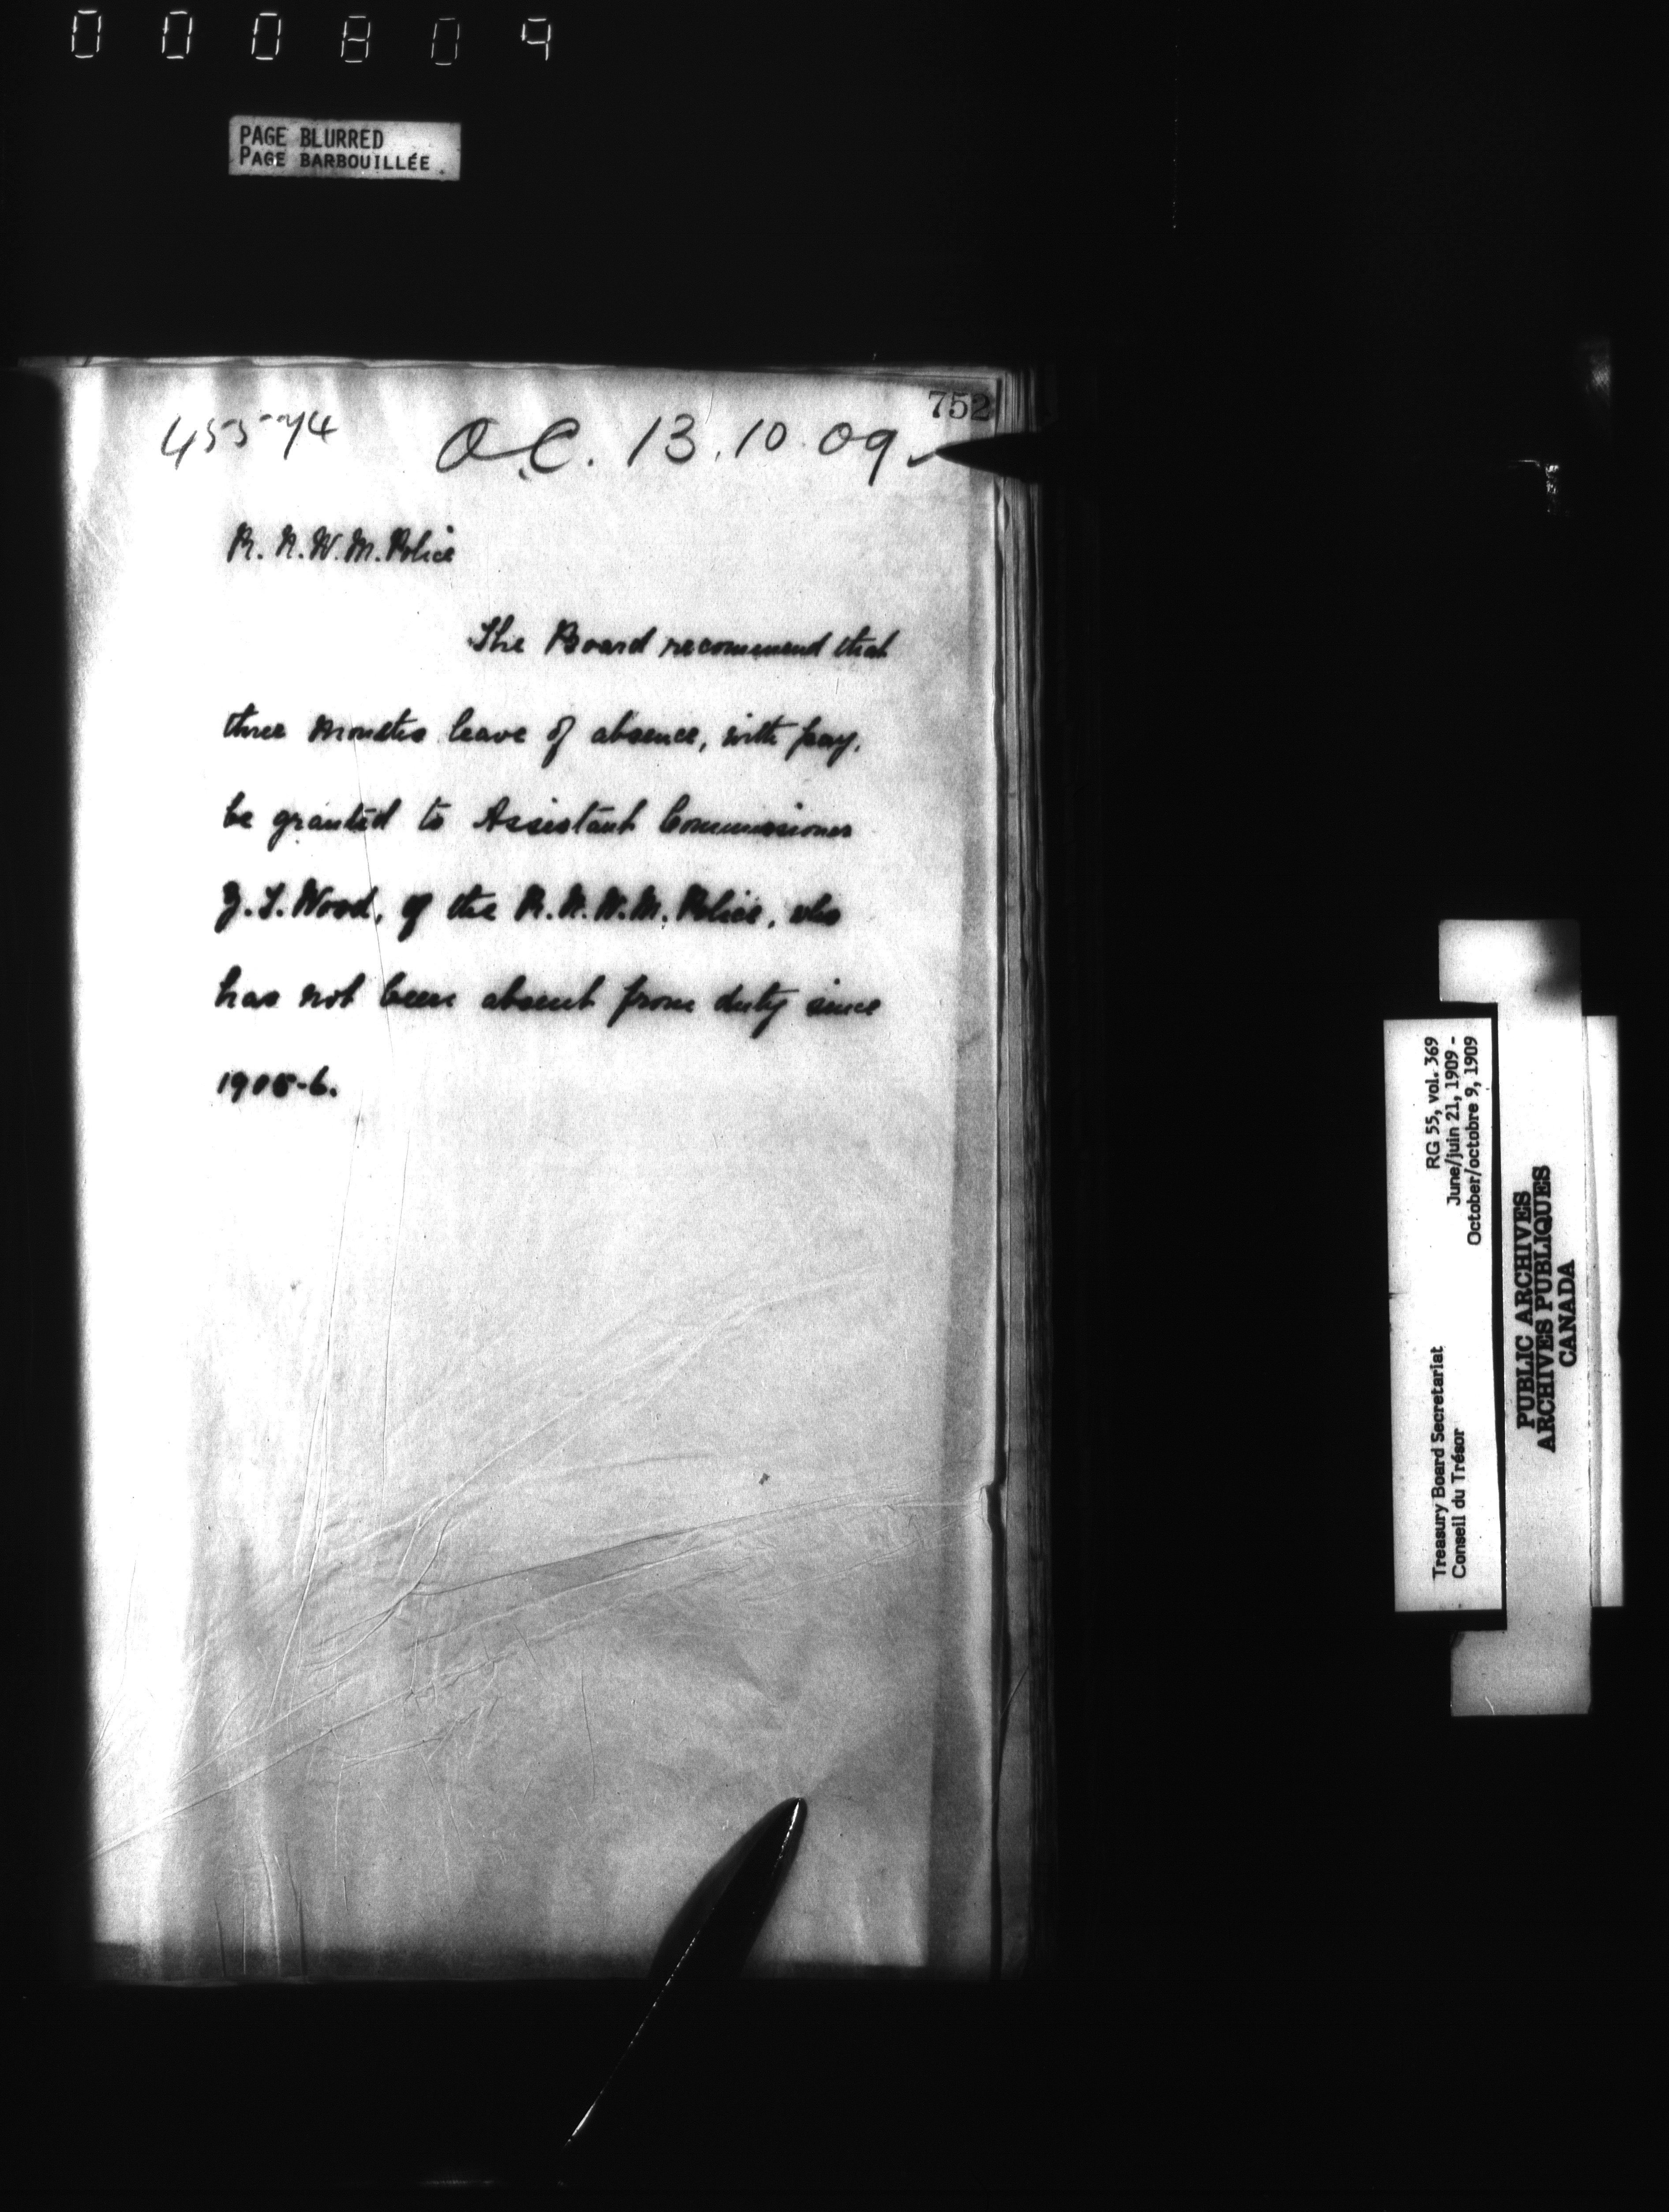 000809
PAGE BLURRED
PAGE BARBOUILLÉE
752
45574 O.C. 13.10.09
R.N.W.M. Police
The Board recommend that
three months leave of absence, with pay,
be granted to Assistant Commissioner
Z.T. Wood, of the R.N.W.M. Police, who
has not been absent from duty since
1905-6.
RG 55, vol. 369
June/juin 21, 1909 -
October/octobre 9, 1909
Treasury Board Secretariat
Conseil du Trésor
PUBLIC ARCHIVES
ARCHIVES PUBLIQUES
CANADA